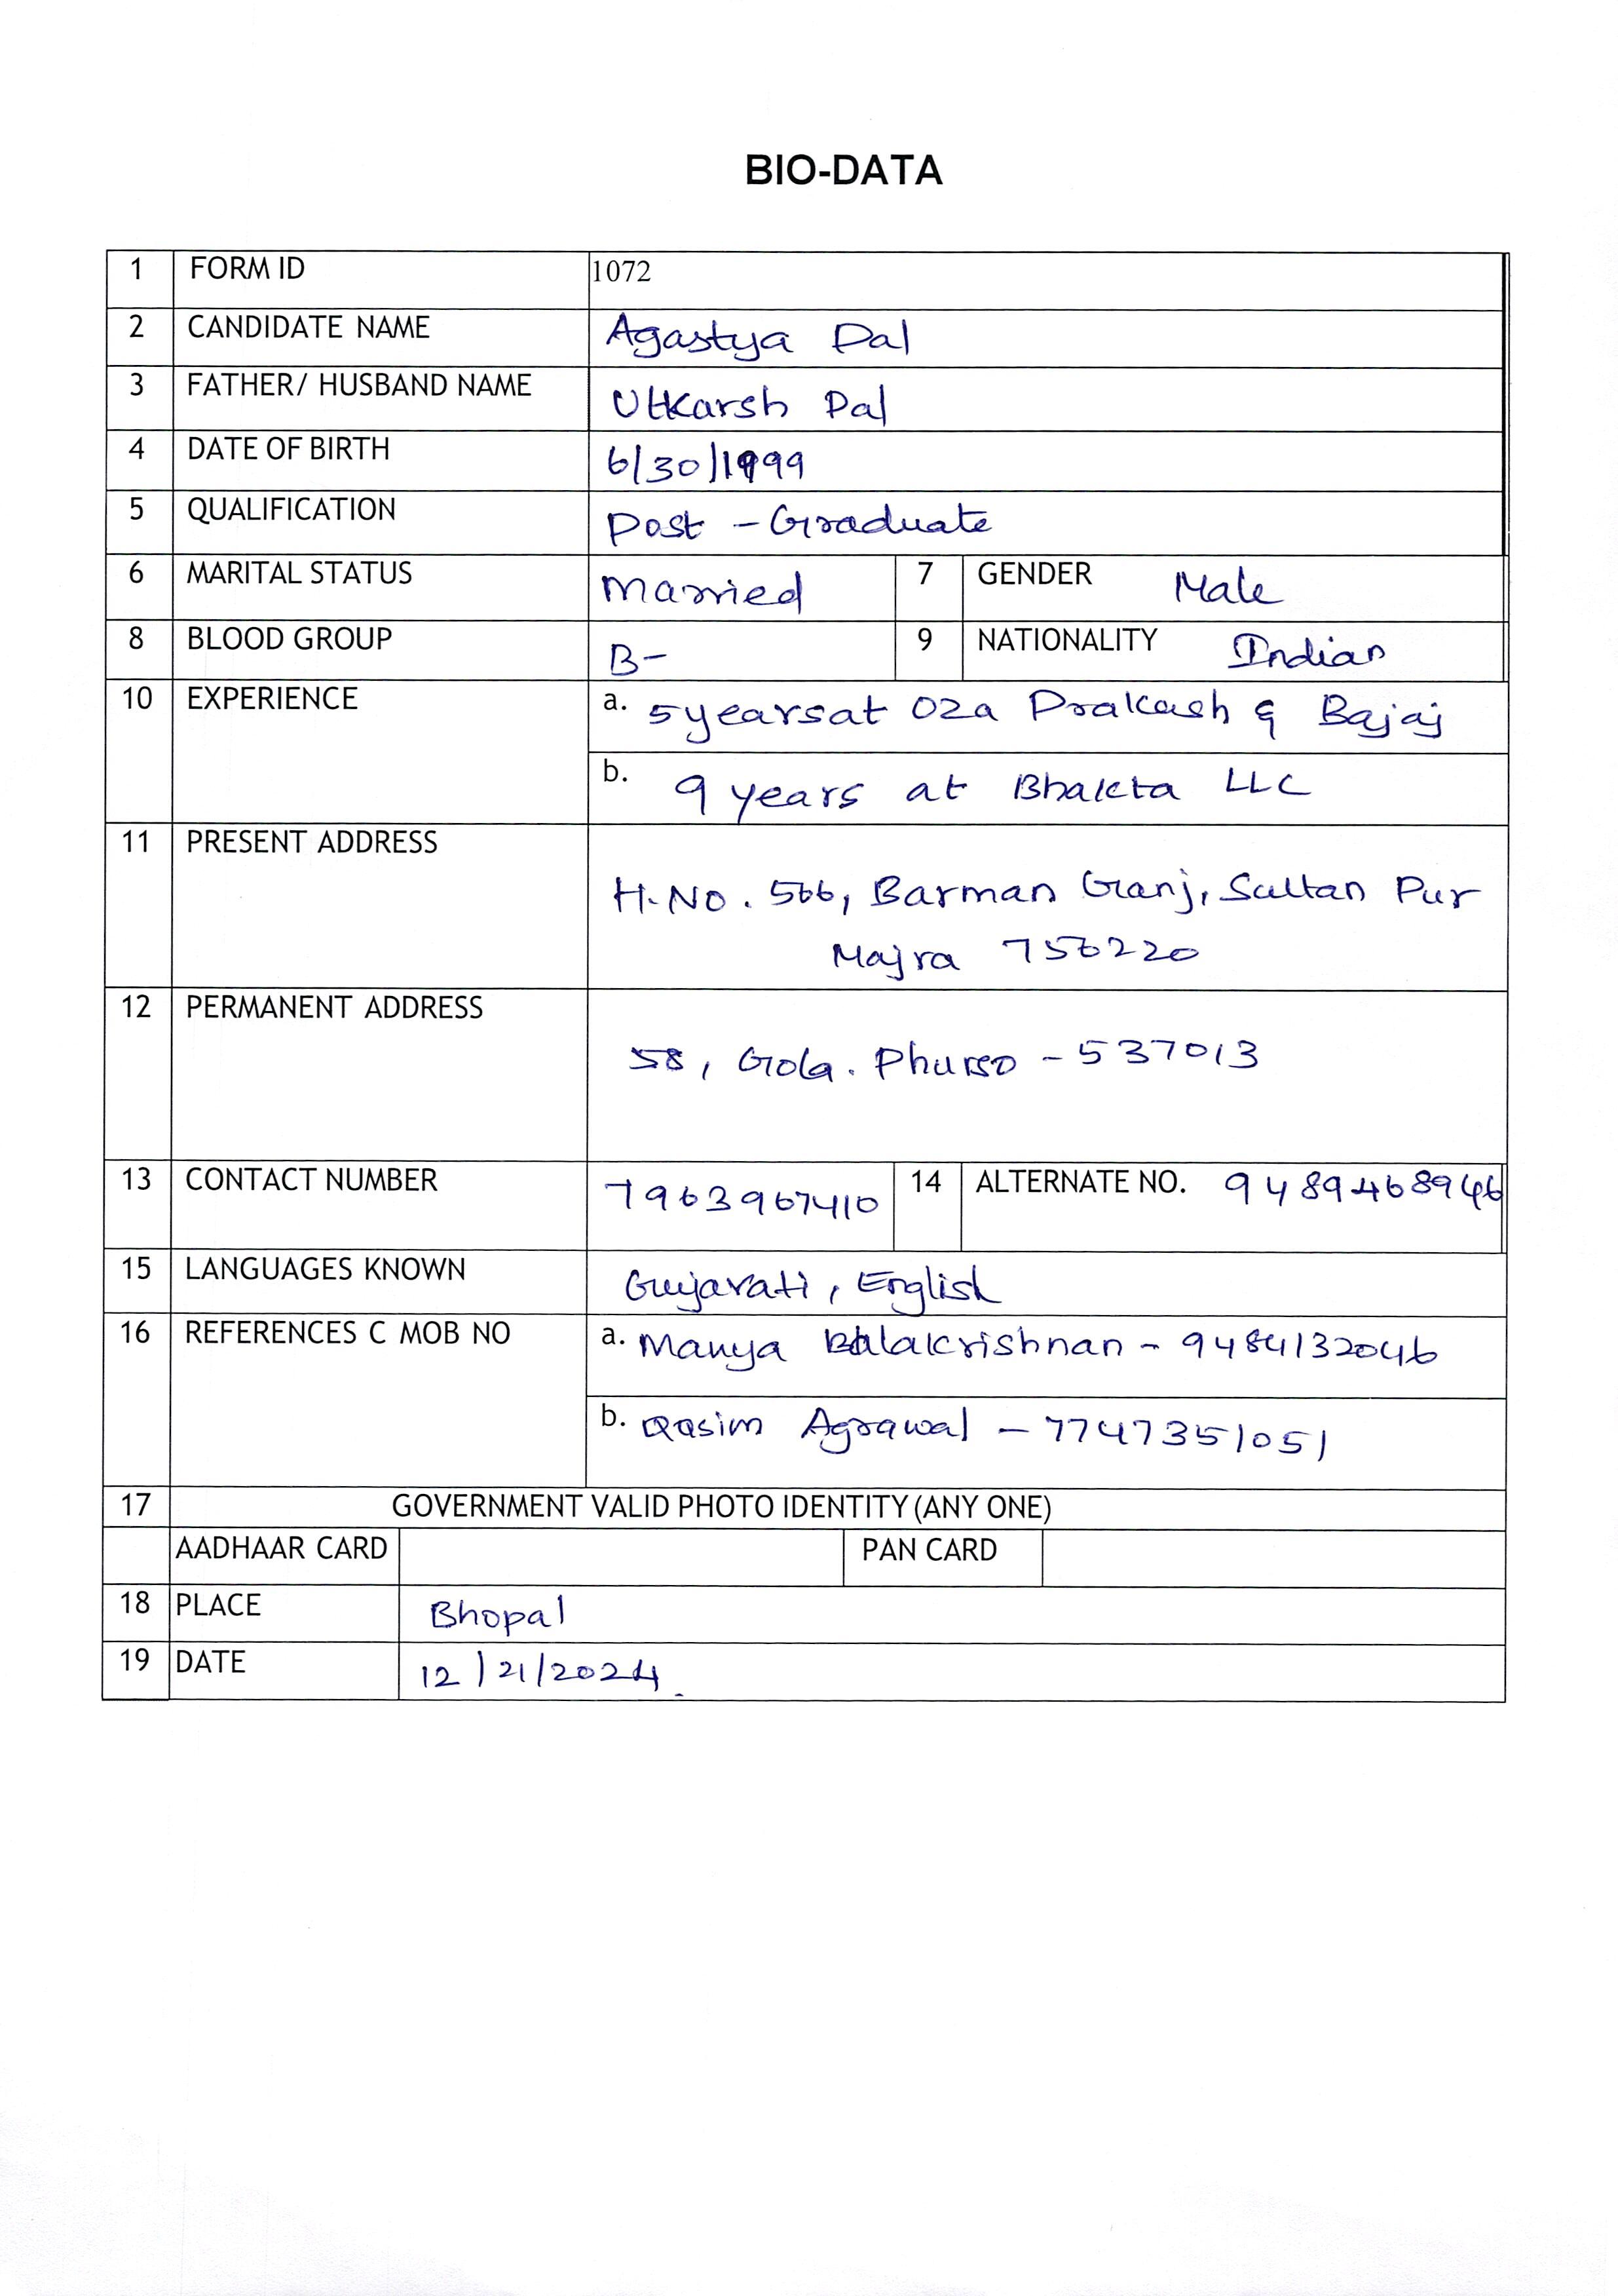 BIO-DATA
1 FORM ID 1072
2 CANDIDATE NAME Agastya Pal
3 FATHER/ HUSBAND NAME Utkarsh Pal
4 DATE OF BIRTH 6/30/1999
5 QUALIFICATION Post - Graduate
6 MARITAL STATUS Married 7 GENDER Male
8 BLOOD GROUP B- 9 NATIONALITY Indian
10 EXPERIENCE a. 5 years at Oza Prakash & Bajaj
b. 9 years at Bhakta LLC
11 PRESENT ADDRESS
H.No. 566, Barman Ganj, Sultan Pur
Majra 756220
12 PERMANENT ADDRESS
58, Gola. - 537013
13 CONTACT NUMBER 7963967410 14 ALTERNATE NO. 9489468946
15 LANGUAGES KNOWN Gujarati, English
16 REFERENCES C MOB NO a. Manya Balakrishnan - 9484132046
b. Qasim Agrawal - 7747351051
17 GOVERNMENT VALID PHOTO IDENTITY (ANY ONE)
AADHAAR CARD PAN CARD
18 PLACE Bhopal
19 DATE 12/21/2024